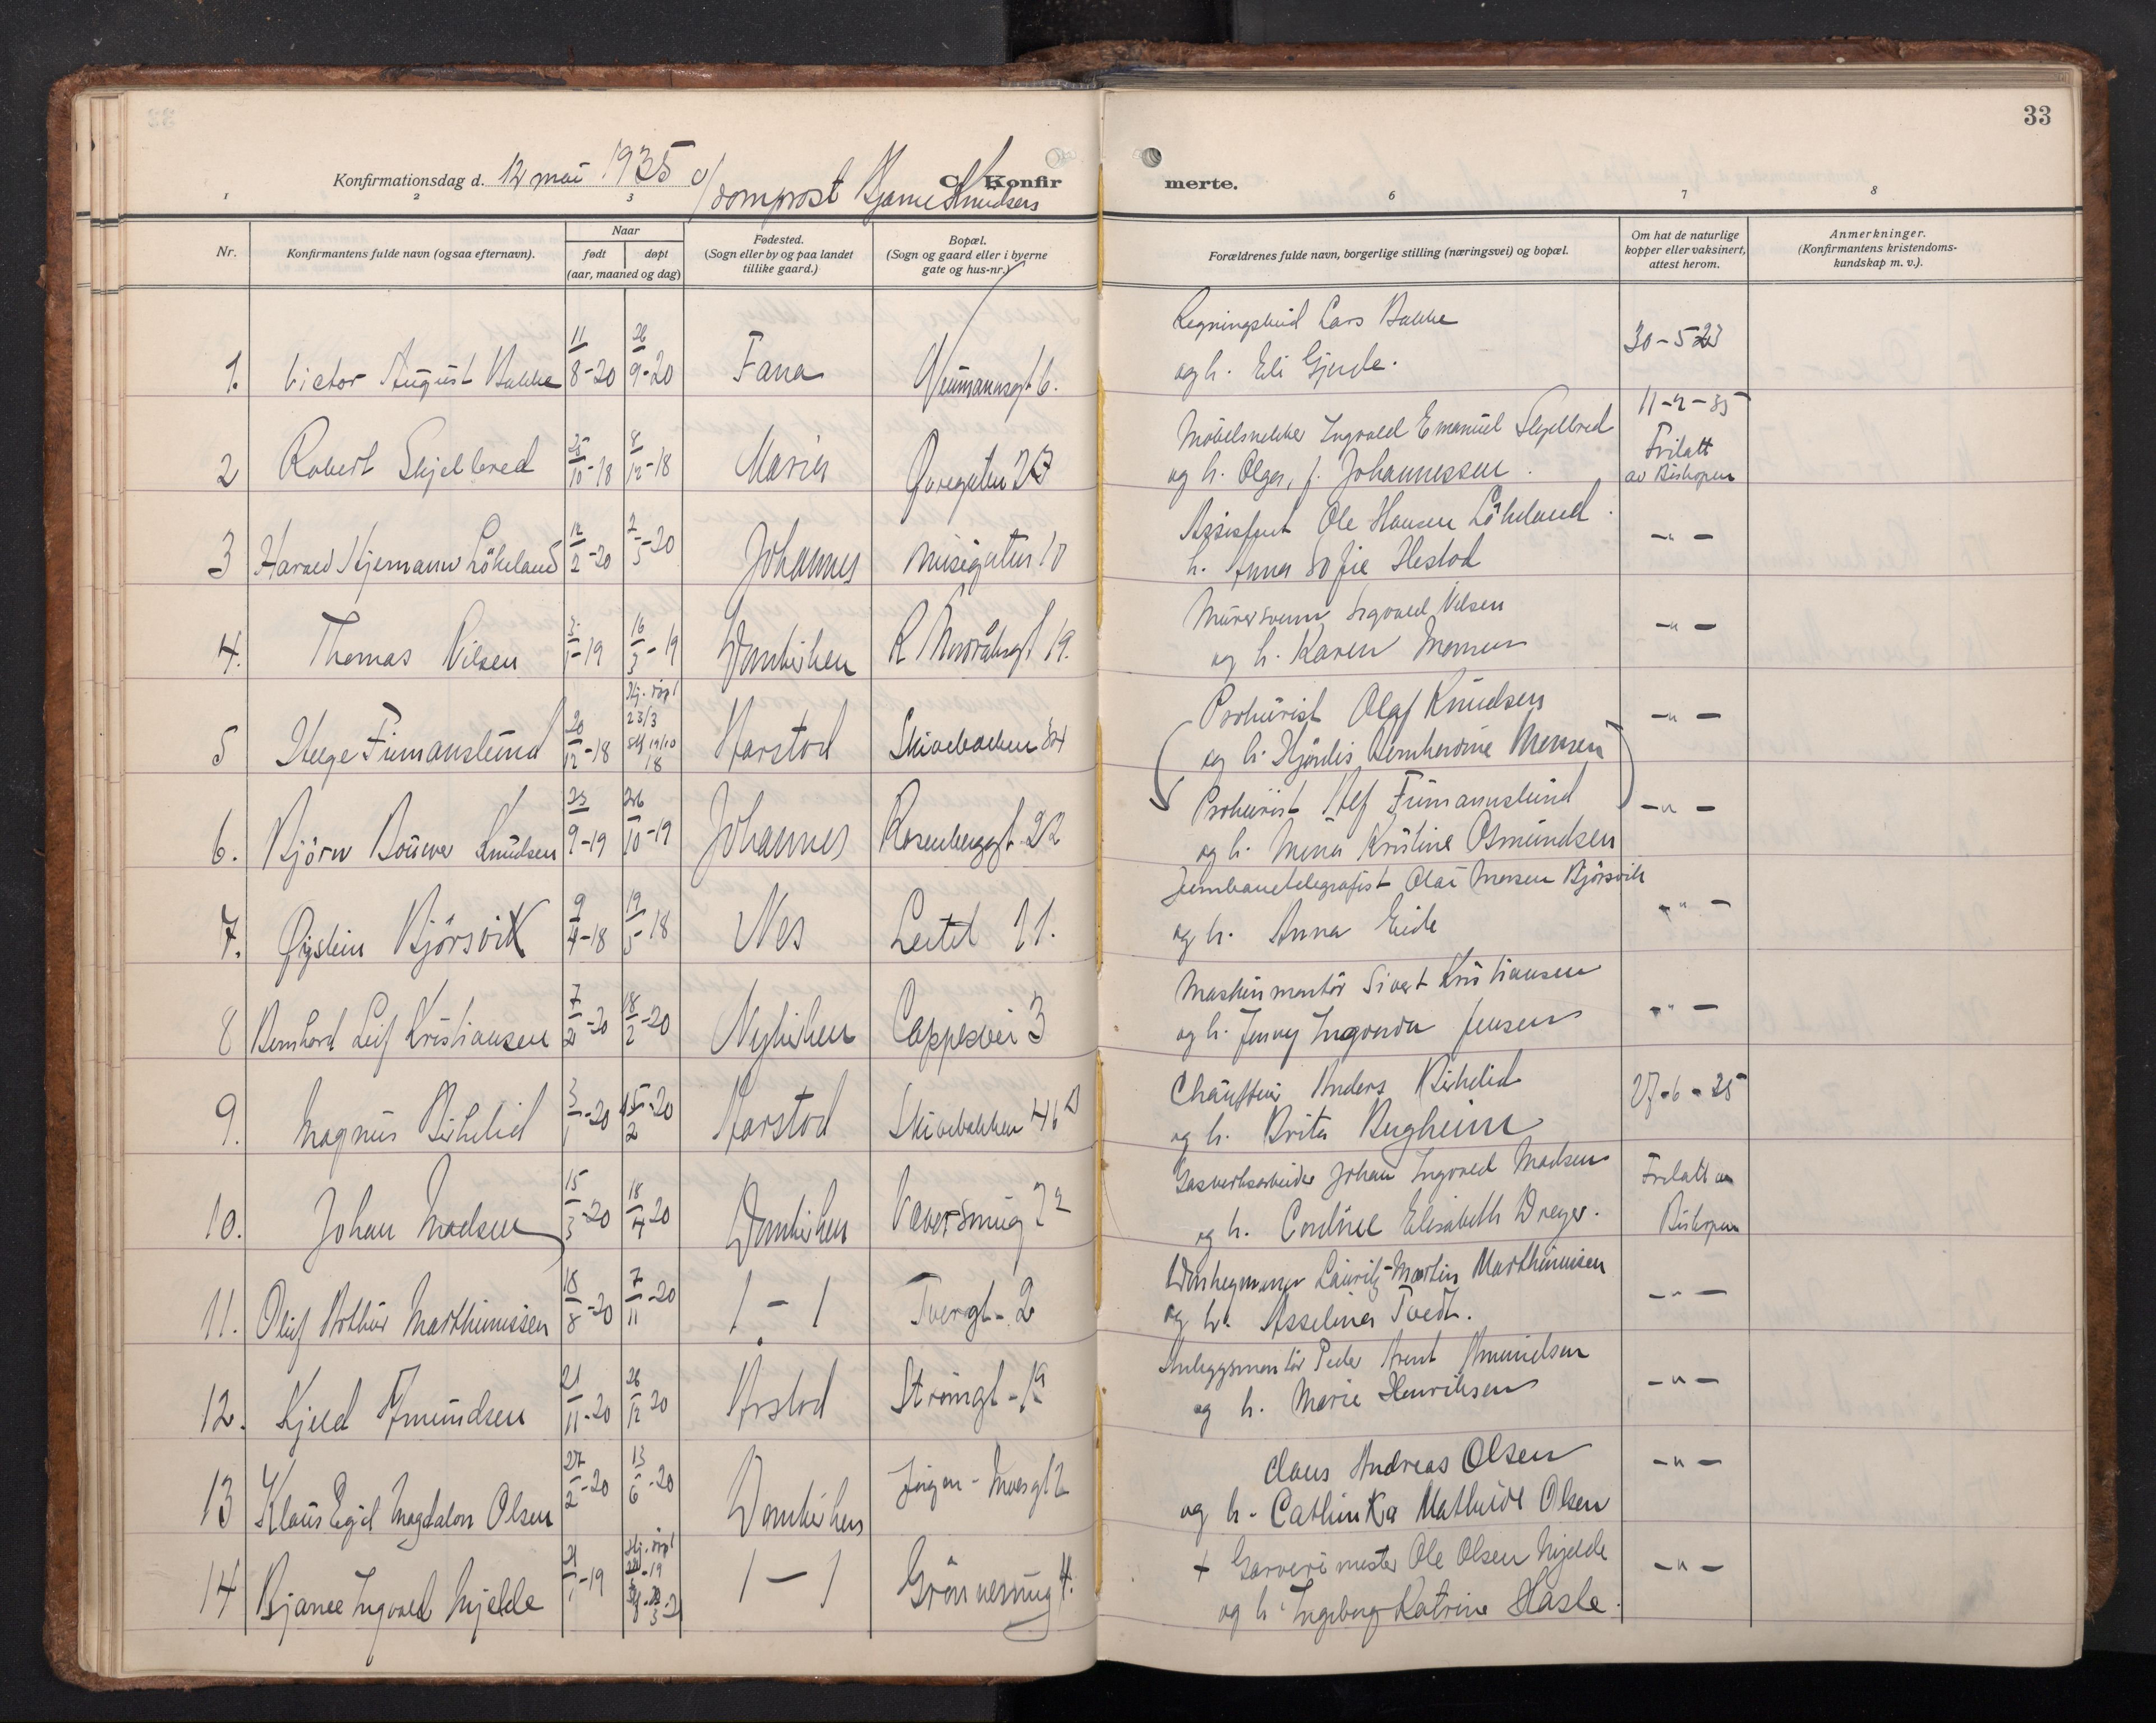 33
Konfirmationsdag d. 12 mai 1935 v/ domprost Bjarne Knudsen
C. Konfirmerte.
1 2 3 6 7 8
Nr. Konfirmantens fulde navn (ogsaa efternavn). Naar født døpt (aar, maaned og dag) Fødested. (Sogn eller by og paa landet tillike gaard.) Bopæl. (Sogn og gaard eller i byerne gate og hus-nr.) Forældrenes fulde navn, borgerlige stilling (næringsvei) og bopæl. Om hat de naturlige kopper eller vaksinert, attest herom. Anmerkninger. (Konfirmantens kristendomskundskap m. v.).
1. Victor August Bakke 11/8-20 26/9-20 Fana Neumannsgt 6. Lars Bakke
og h. Eli Gjerde. 30-5-23
2 Robert Skjelbred 25/10-18 8/12-18 Maria Øvregaten 27 Møbelsnekker Ingvald Emanuel Skjelbred
og h. Olga, f. Johannessen. 11-4-35 Fritatt av Biskopen
3 Harald Hjemann Lökeland 12/2-20 2/5-20 Johannes 10 Assistent Ole Hansen Lökeland
h. Anna Sofie Hestad -"-
4. Thomas Nilsen 3/1-19 16/3-19 Domkirken 19. Murersvenn Nilsen
og h. Karen Monsen -"-
5 Helge Fürmanslund 20/12-18 Hj. döpt 23/3 Aarstad Skivebakken 34 Prokurist Olaf Knudsen
og h. Hjördis Monsen -"-
6. Björn Bouwer Knudsen 23/9-19 26/10-19 Johannes Rosenbergsgt 22 Prokurist Alf Fürmannslund
og h. Mina Kristine Osmundsen -"-
7. Øystein Björsvik 9/4-18 19/5-18 Nes Leitet 11. Jernbanetelegrafist Olai Monsen Björsvik
og h. Anna Eide -"-
8 Bernhard Leif Kristiansen 7/2-20 18/2-20 Nykirken Cappesvei 3 Maskinmontör Sivert Kristiansen
og h. Jenny Ingvarda Jensen -"-
9. Magnus Birkelid 3/1-20 15/2-20 Aarstad Skivebakken 46 Chauffeur Anders Birkelid
og h. Brita Bergheim 27-6-25
10. Johan Madsen 15/3-20 18/4-20 Domkirken Vaversmug Gasverksarbeider Johan Ingvald Madsen
og h. Cordine Elisabeth Dreyer. Fritatt av Biskopen
11. Olaf Arthur Marthinussen 18/8-20 7/11-20 1 - 1 Tvergt. 2 Lauritz Martin Marthinussen
og h. Asseline Tvedt. -"-
12. Kjell Amundsen 21/11-20 26/12 20 Årstad Strömgt - 19 Anleggsmontör Peder Arent Amundsen
og h. Marie Henriksen -"-
13 Klaus Egil Magdalon Olsen 27/2-20 13/6-20 Domkirken Claus Andreas Olsen
og h. Cathinka Mathilde Olsen -"-
14 Bjarne Ingvald Mjelde 21/1-19 Hj. döpt 1 - 1 Grönnersmug 4. + Garverimester Ole Olsen Mjelde
og h. Ingeborg Katrine Hasle. -"-